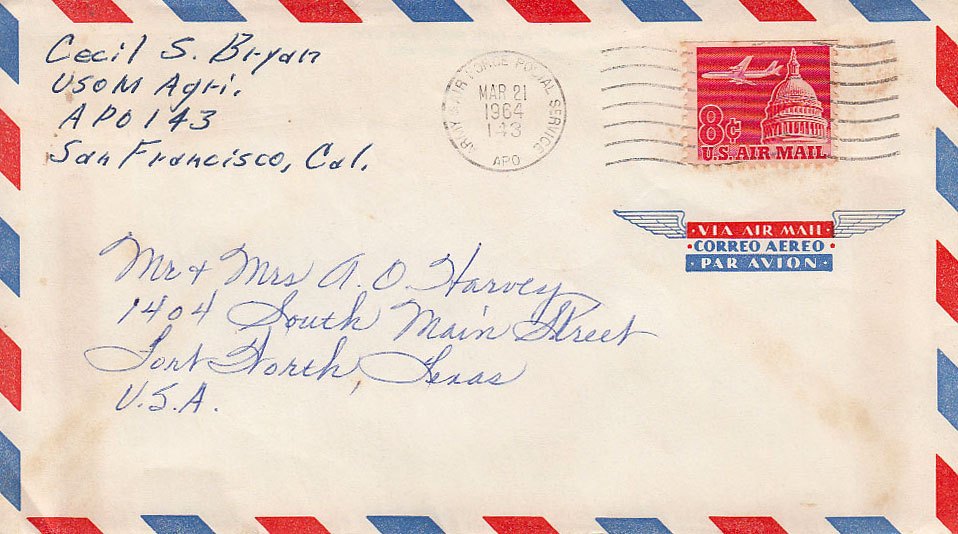 Cecil S. Bryan
USOM Agri.
APO 143
San Francisco, Cal.
ARMY & AIR FORCE POSTAL SERVICE
MAR 21
1964
143
APO
8¢
U.S. AIR MAIL
VIA AIR MAIL
CORREO AEREO
PAR AVION
Mr & Mrs A. O. Harvey
1404 South Main Street
Fort Worth, Texas
U.S.A.